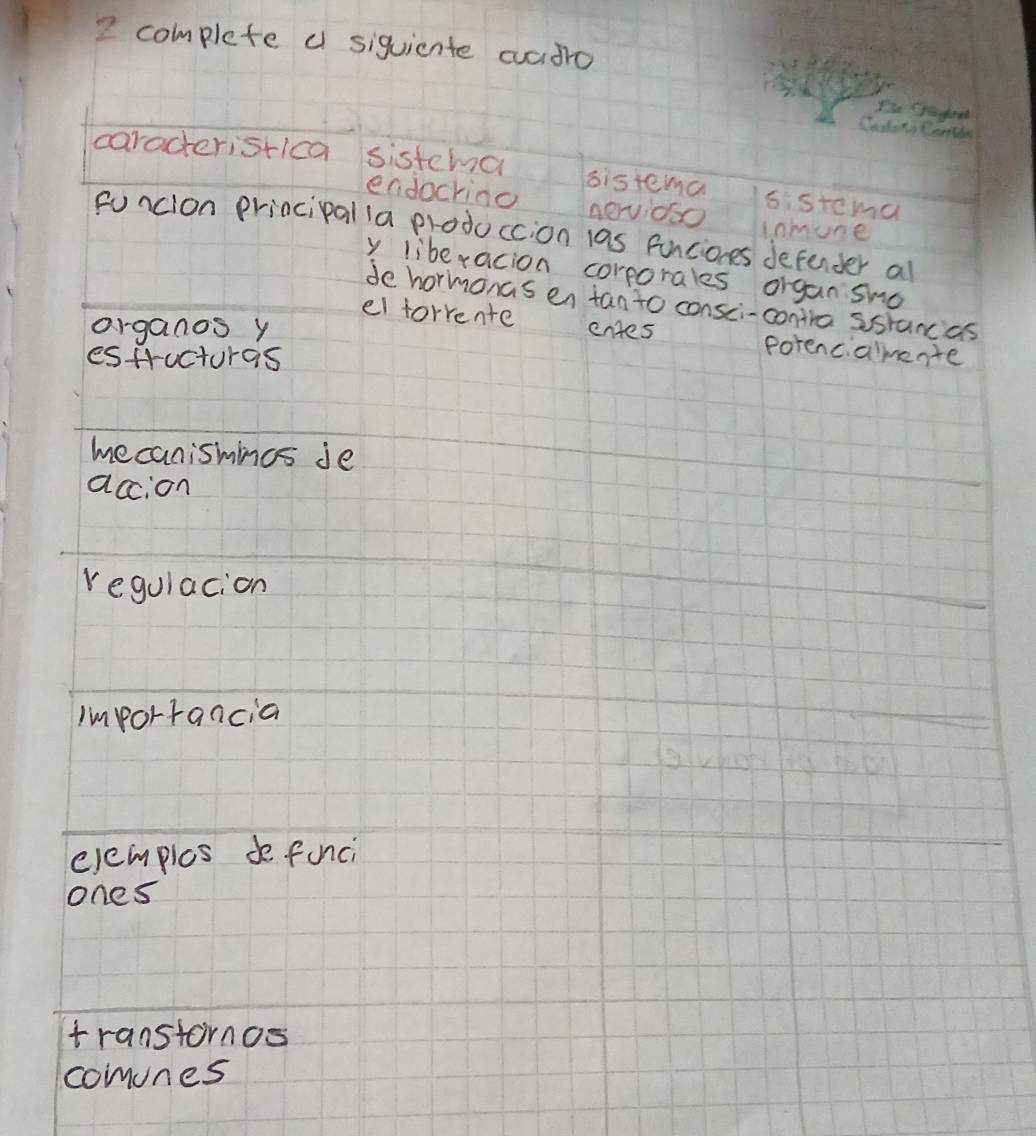 2 complete el siguiente cuadro
caracteristica sistema sistema sistema
endocrino nervioso inmune
funcion principal la produccion las funciones defender al
y liberacion corporales organismo
de hormonas en tanto consci- contra sustancias
el torrente entes potencialmente
organos y
estructuras
mecanismmos de
accion
regulacion
importancia
ejemplos de funci
ones
transtornos
comunes